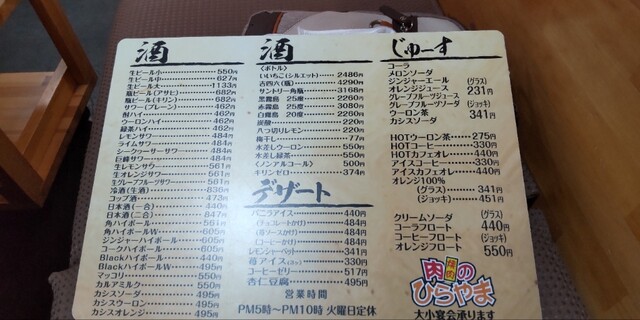 酒
生ビール小 550円
生ビール中 627円
生ビール大 1133円
瓶ビール(アサヒ) 682円
瓶ビール(キリン) 682円
サワー(プレーン) 462円
酎ハイ 462円
ウーロンハイ 462円
緑茶ハイ 462円
レモンサワー 484円
ライムサワー 484円
シークヮーサーサワー 484円
巨峰サワー 484円
生レモンサワー 561円
生オレンジサワー 561円
生グレープフルーツサワー 561円
冷酒(生酒) 836円
コップ酒 473円
日本酒(一合) 440円
日本酒(二合) 847円
角ハイボール 561円
角ハイボールW
ジンジャーハイボール 605円
コークハイボール 605円
Blackハイボール 440円
BlackハイボールW
マッコリ 550円
カルアミルク 550円
カシスソーダ 495円
カシスウーロン 495円
カシスオレンジ 495円
酒
〈ボトル〉
いいちこ(シルエット) 2486円
吉四六(瓶) 4290円
サントリー角瓶 3168円
黒霧島 25度 2260円
赤霧島 25度 2260円
白霧島 20度 2260円
炭酸 220円
八つ切りレモン 220円
梅干し 77円
水差しウーロン 500円
水差し緑茶 500円
〈ノンアルコール〉 500円
キリンゼロ 374円
デザート
バニラアイス 440円
(チョコレートかけ) 484円
(苺ソースかけ) 484円
(コーヒーかけ) 484円
レモンシャーベット 341円
苺アイス 330円
コーヒーゼリー 517円
杏仁豆腐 495円
営業時間
PM5時〜PM10時 火曜日定休
じゅーす
コーラ
メロンソーダ
ジンジャーエール (グラス)
オレンジジュース 231円
グレープフルーツジュース
グレープフルーツソーダ (ジョッキ)
ウーロン茶 341円
カシスソーダ
HOTウーロン茶 275円
HOTコーヒー 330円
HOTカフェオレ 440円
アイスコーヒー 330円
アイスカフェオレ 440円
オレンジ100%
(グラス) 341円
(ジョッキ) 451円
クリームソーダ (グラス)
コーラフロート 440円
コーヒーフロート (ジョッキ)
オレンジフロート 550円
肉のひらやま
大小宴会承ります